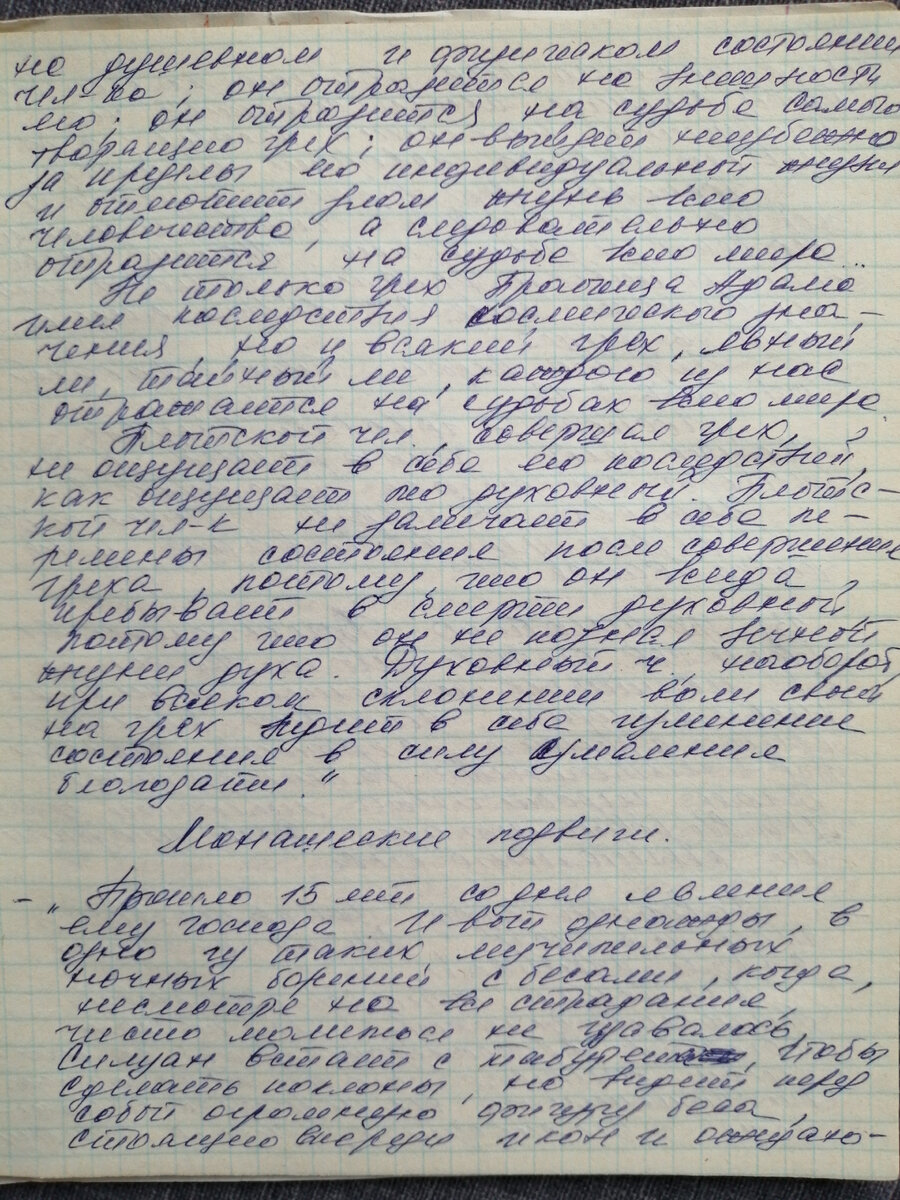 на душевном и физическом состоянии
чел-ка; он отразится на внешности
его; он отразится на судьбе самого
творящего грех; он выйдет неизбежно
за пределы его индивидуальной жизни
и отяготит злом жизнь всего
человечества, а следовательно
отразится на судьбе всего мира..
Не только грех Праотца Адама
имел последствия космического зна-
чения, но и всякий грех, явный
ли, тайный ли, каждого из нас
отражается на судьбах всего мира
Плотской чел., совершая грех,
не ощущает в себе его последствий,
как ощущает его духовный. Плотс-
кой чел-к не замечает в себе пе-
ремены состояния после совершения
греха, потому, что он всегда
пребывает в смерти духовной,
потому что он не познал вечной
жизни духа. Духовный ч., наоборот,
при всяком склонении воли своей
на грех видит в себе изменение
состояния в силу умаления
благодати."
Монашеские подвиги.
- „Прошло 15 лет со дня явления
ему Господа. И вот однажды, в
одно из таких мучительных
ночных борений с бесами, когда,
несмотря на все страдания,
чисто молиться не удавалось,
Силуан встает с табурета, чтобы
сделать поклоны, но видит перед
собой огромную фигуру беса,
стоящего впереди икон и ожидаю-